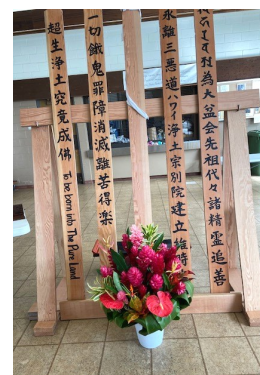 為大盆会先祖代々諸精霊追善
永離三悪道ハワイ浄土宗別院建立
一切餓鬼罪障消滅離苦得楽
超生浄土究竟成佛 To be Born into The Pure Land